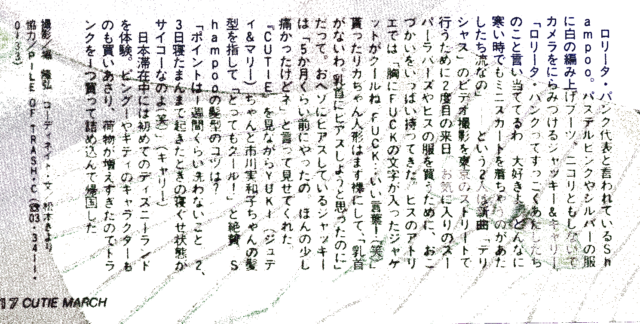 ロリータ・パンク代表と言われているSh
ampoo。パステルピンクやシルバーの服
に白の編み上げブーツ、ニコリともしないで
カメラをにらみつけるジャッキー&キャリー。
「ロリータ・パンクってすっごくあたしたち
のこと言い当ててるわ 大好き! どんなに
寒い時でもミニスカートを着ちゃうのがあた
したち流なの」 という2人は新曲『デリ
シャス』のビデオ撮影を東京のストリートで
行うために2度目の来日 お気に入りのスー
パーラバーズやヒスの服を買うために、おこ
づかいをいっぱい持ってきた。ヒスのアトリ
エでは「胸にFUCKの文字が入ったジャケ
ットがクールね FUCK、いい言葉!(笑)」
貰ったリカちゃん人形はまず裸にして、「乳首
がないわ、乳首にピアスしようと思ったのに」
だって。おヘソにピアスしているジャッキー
は「5か月くらい前にやったの ほんの少し
痛かったけどネ」と言って見せてくれた
『CUTIE』を見ながらYUKI(ジュデ
ィ&マリー)ちゃんと市川実和子ちゃんの髪
型を指して「とってもクール!」と絶賛 S
hampooの髪型のコツは?
「ポイントは1週間くらい洗わないこと 2、
3日寝たまんまで起きたときの寝ぐせ状態が
サイコーなのよ(笑)」(キャリー)
日本滞在中には初めてのディズニーランド
を体験。ピングーやキティのキャラクターも
のも買いあさり、荷物が増えすぎたのでトラ
ンクを1つ買って詰め込んで帰国した
撮影/堀 隆弘 コーディネイト・文/松本きより
協力/PILE OF TRASH・C(☎03・3411・
0133)
17 CUTIE MARCH